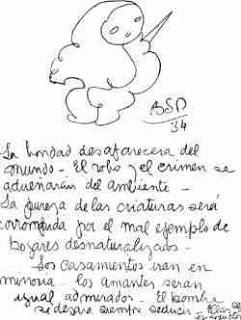 BSP
34
La bondad desaparecera del
mundo - El robo y el crimen se
adueñarán del ambiente -
La pureza de las criaturas será
corrompida por el mal ejemplo de
hogares desnaturalizados -
Los casamientos iran en
minoria - los amantes seran
igual admirados. El hombre
se dejara siempre seducir -